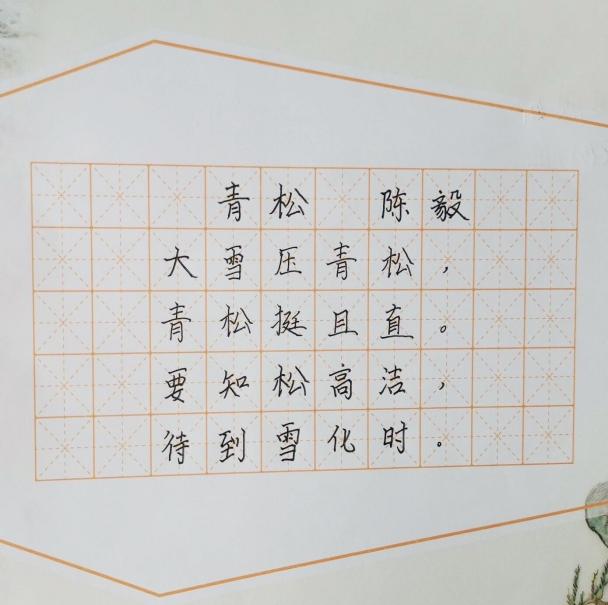 青松 陈毅
大雪压青松，
青松挺且直。
要知松高洁，
待到雪化时。